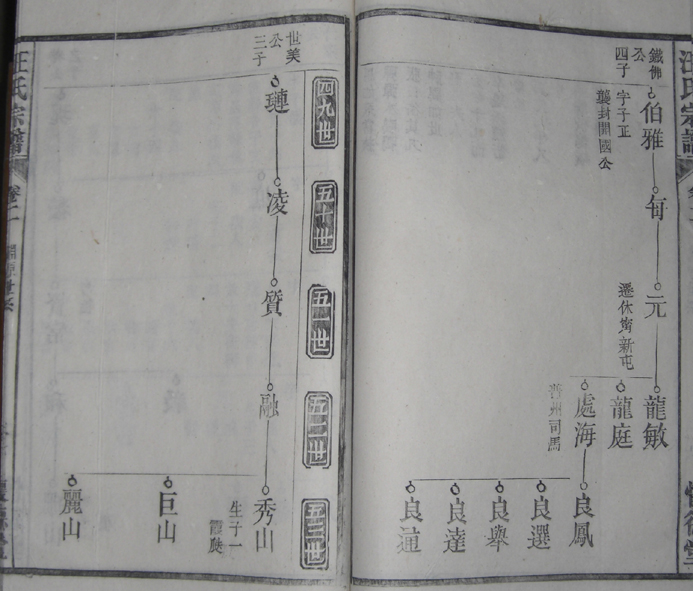 汪氏宗譜
鐵佛
公
四子
伯雅
字子正
襲封開國公
每
元
遷休甯新屯
龍敏
龍庭
處海
普州司馬
良鳳
良選
良舉
良達
四九世
五十世
五一世
五二世
五三世
世美
公
三子
璉
凌
質
融
秀山
生子一
巨山
麗山
汪氏宗譜
卷二